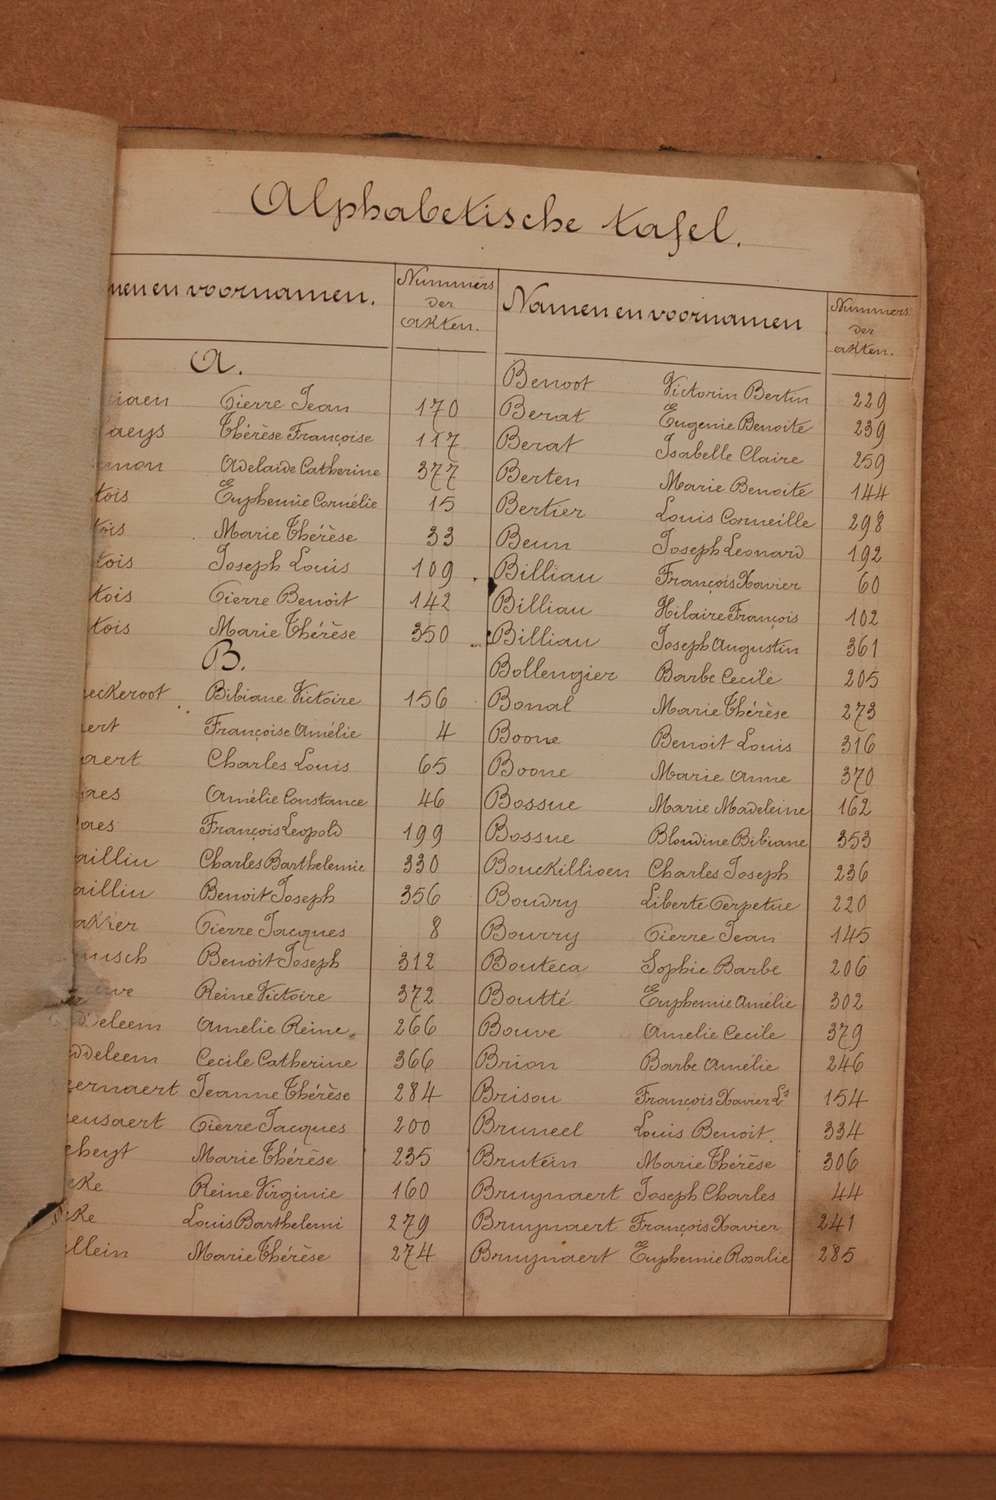 Alphabetische tafel.
men en voornamen.
Nummers
der
akten.
A.
iaen Pierre Jean 170
aeys Thérèse Françoise 117
mon Adelaide Catherine 377
tois Euphemie Cornélie 15
tois Marie Thérèse 33
tois Joseph Louis 109
tois Pierre Benoit 142
tois Marie Thérèse 350
B.
eckeroot Bibiane Victoire 156
ert Françoise Amélie 4
aert Charles Louis 65
aes Amélie Constance 46
aes François Leopold 199
aillin Charles Barthelemie 330
aillin Benoit Joseph 356
akker Pierre Jacques 8
usch Benoit Joseph 312
ve Reine Victoire 372
deleem Amelie Reine 266
ddeleem Cecile Catherine 366
ernaert Jeanne Thérèse 284
eusaert Pierre Jacques 200
cheyt Marie Thérèse 235
cke Reine Virginie 160
cke Louis Barthelemi 279
llein Marie Thérèse 274
Namen en voornamen
Nummers
der
akten.
Benoot Victorin Bertin 229
Berat Eugenie Benoite 239
Berat Isabelle Claire 259
Berten Marie Benoite 144
Bertier Louis Corneille 298
Beun Joseph Leonard 192
Billiau François Xavier 60
Billiau Hilaire François 102
Billiau Joseph Augustin 361
Bollengier Barbe Cecile 205
Bonal Marie Thérèse 273
Boone Benoit Louis 316
Boone Marie Anne 370
Bossue Marie Madeleine 162
Bossue Blondine Bibiane 353
Bouckillioen Charles Joseph 236
Boudry Liberte Perpetue 220
Bourry Pierre Jean 145
Bouteca Sophie Barbe 206
Boutté Euphemie Amélie 302
Bouve Amelie Cecile 379
Brion Barbe Amélie 246
Brisou François Xavier Ls 154
Bruneel Louis Benoit. 334
Brutein Marie Thérèse 306
Bruynaert Joseph Charles 44
Bruynaert François Xavier 241
Bruynaert Euphemie Rosalie 285